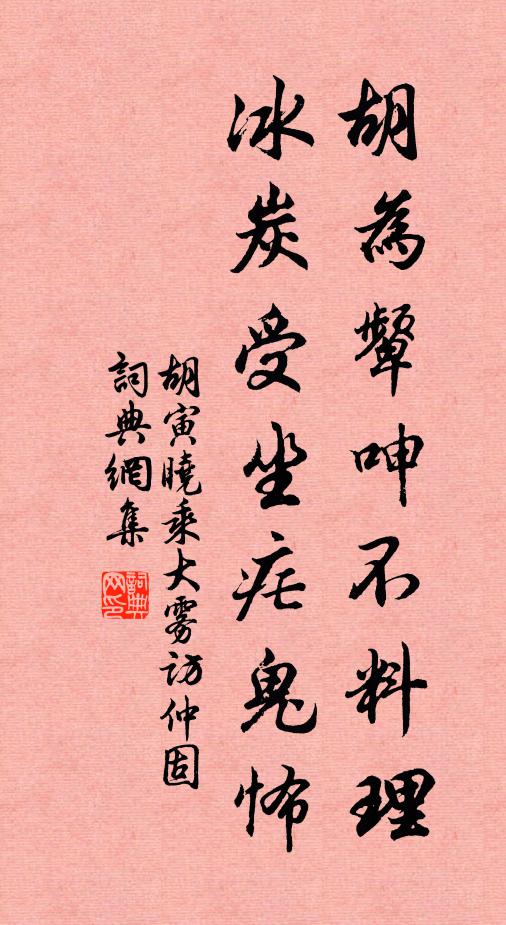 胡為顰呻不料理
冰炭受坐疟鬼怖
胡寅曉乘大雾访仲固
詞典網集
詞典网印